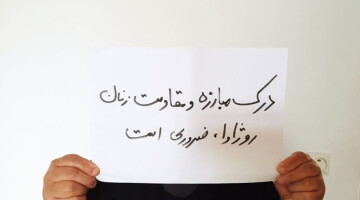 درک مبارزه و مقاومت زنان
روژاوا، ضروری است